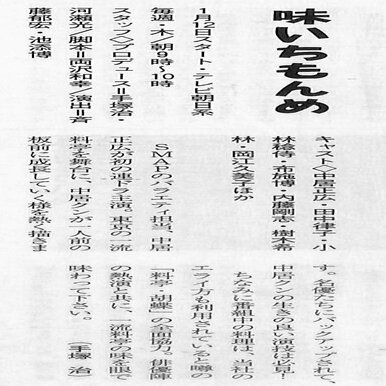 味いちもんめ
1月12日スタート・テレビ朝日系
毎週・木／朝9時〜10時
スタッフ＞プロデュース＝手塚治・
河瀬光／脚本＝両沢和幸／演出＝斉
藤郁宏・池添博
キャスト＞中居正広・田中律子・小
林稔侍・布施博・内藤剛志・樹木希
林・岡江久美子ほか
SMAPのバラエティ担当、中居
正広が初の連ドラ主演。東京の一流
料亭を舞台に、中居クンが一人前の
板前に成長していく様を熱く描きま
す。名優たちにバックアップされて、
中居クンの生きの良い演技は必見！
ちなみに番組中の料理は、当社の
エライ方も利用されていると噂の
「料亭・胡蝶」の全面協力。俳優陣
の熱演と共に、一流料亭の味を眼で
味わって下さい。（手塚 治）